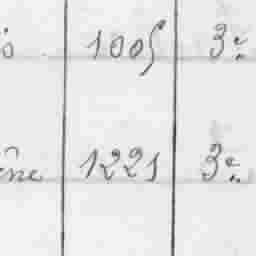 is 1005 3e
ène 1221 3e